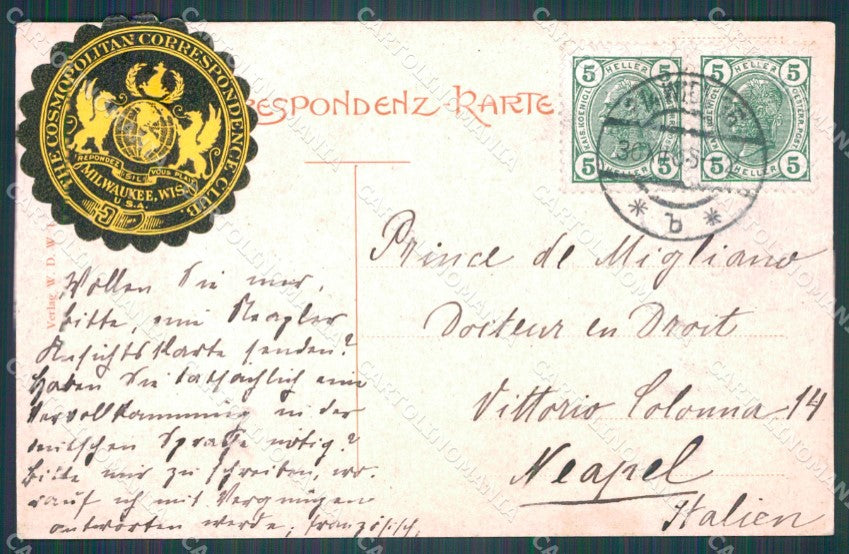 THE COSMOPOLITAN CORRESPONDENCE CLUB.
REPONDEZ S'IL VOUS PLAIT
MILWAUKEE, WIS.
U.S.A.
RESPONDENZ-KARTE
5 HELLER 5
KAIS. KOENIGL. OESTERR. POST
5 HELLER 5
5 HELLER 5
KAIS. KOENIGL. OESTERR. POST
5 HELLER 5
WIEN
* b *
Verlag W. D. W.
Prince de Migliano
Docteur en Droit
Vittorio Colonna 14
Neapel
Italien
Wollen Sie mir,
bitte, eine Neapler
Ansichtskarte senden?
Haben Sie tatsächlich eine
Vervollkommnung in der
deutschen Sprache nötig?
Bitte mir zu schreiben, wo-
rauf ich mit Vergnügen
antworten werde; französisch,